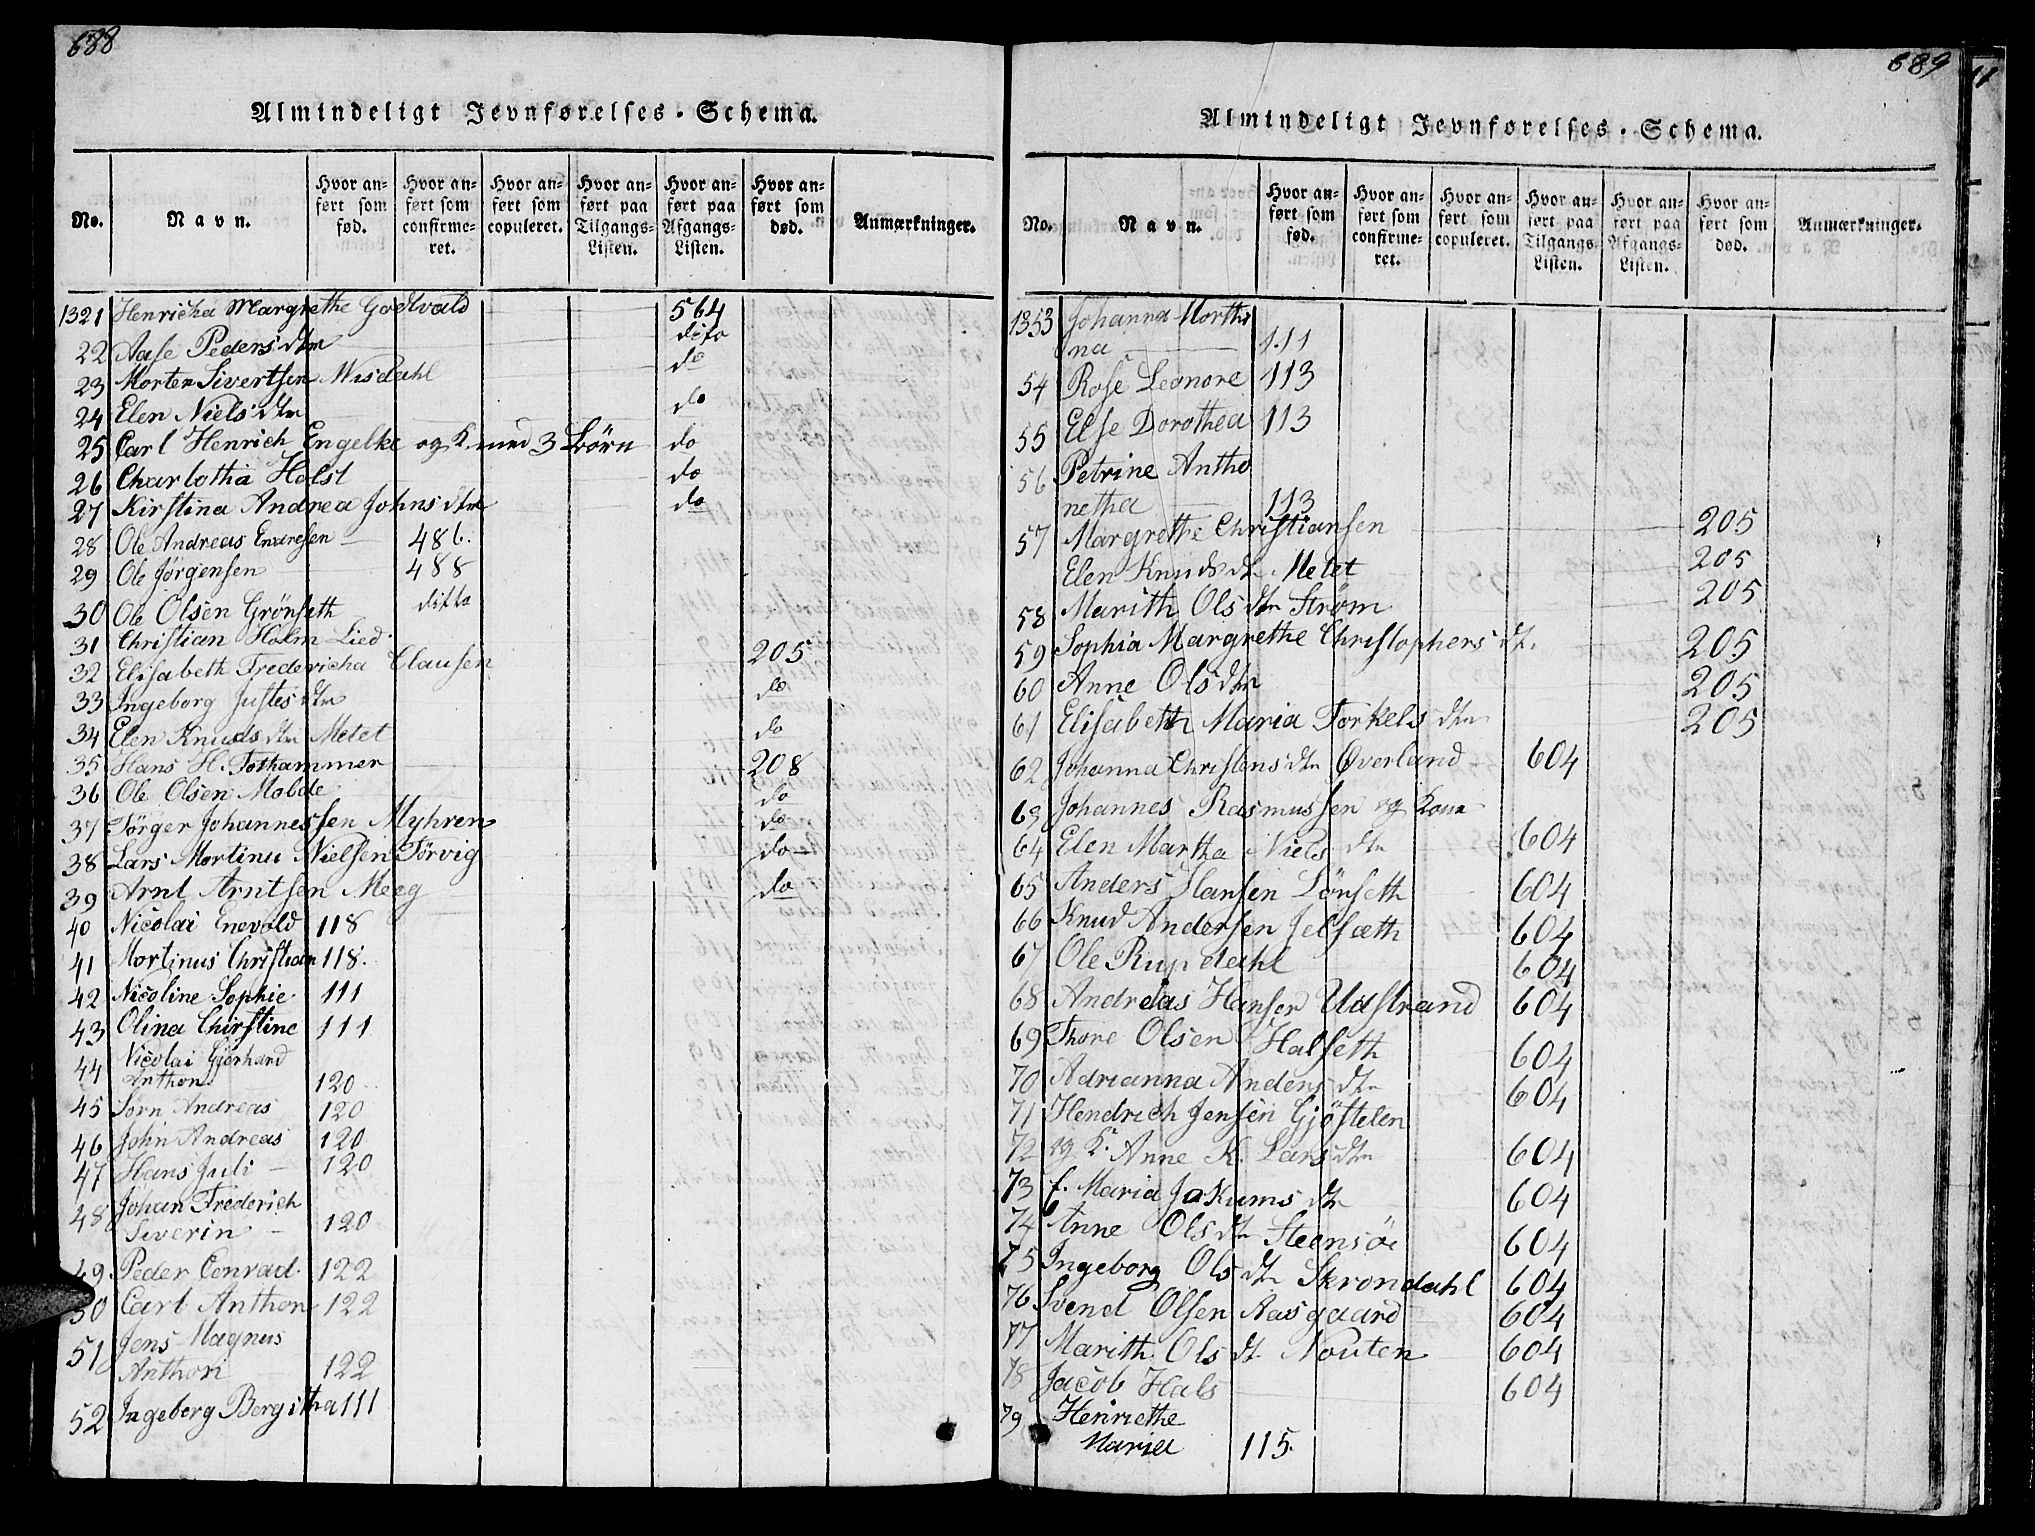 688
Almindeligt Jevnførelses-Schema.
No. Navn. Hvor anført som fød. Hvor anført som confirmeret. Hvor anført som copuleret. Hvor anført paa Tilgangs-Listen. Hvor anført paa Afgangs-Listen. Hvor anført som død. Anmærkninger.
1321 Henricha Margrethe Godtvald 564
22 Aase Peders dtr dito
23 Morten Sivertsen Misdahl do
24 Elen Niels dtr do
25 Carl Henrich Engelke og K. med 3 Børn do
26 Charlotha Holst do
27 Kirstina Andrea Johns dtr do
28 Ole Andreas Enersen 486.
29 Ole Jørgensen 488
30 Ole Olsen Grönseth ditto
31 Christian Holm Lied
32 Elisabeth Fredericha Clausen 205
33 Ingeborg Justes dtr do
34 Elen Knuds dtr Metet do
35 Hans H. Tothammer 208
36 Ole Olsen Mobde do
37 Törger Johannessen Myhren do
38 Lars Mortinu Nielsen Törvig do
39 Arnt Arntsen Meeg do
40 Nicolai Enevold 118
41 Mortinus Christian 118.
42 Nicoline Sophie 111
43 Olina Chirstine 111
44 Nicolai Gjörhard
Anthon 120
45 Sörn Andreas 120
46 John Andreas 120
47 Hans Juli 120
48 Johan Frederich
Siverin 120
49 Peder Conrad 122
50 Carl Anthon 122
51 Jens Magnus
Anthon 122
52 Ingeborg Bergitha 111
689
Almindeligt Jevnførelses-Schema.
No. Navn. Hvor anført som fød. Hvor anført som confirmeret. Hvor anført som copuleret. Hvor anført paa Tilgangs-Listen. Hvor anført paa Afgangs-Listen. Hvor anført som død. Anmærkninger.
1353 Johanna Morthi
na 111
54 Rose Leonore 113
55 Else Dorothea 113
56 Petrine Antho
netha 113
57 Margrethe Christiansen 205
Elen Knuds dtr Metet 205
58 Marith Ols dtr Strøm 205
59 Sophia Margrethe Christophers dtr. 205
60 Anne Ols dtr 205
61 Elisabeth Maria Torkels dtr 205
62 Johanna Christens dtr Øverland 604
63 Johannes Rasmussen og Kone
64 Elen Martha Niels dtr 604
65 Anders Hansen Lönseth 604
66 Knud Andersen Jelsæth 604
67 Ole Rupdahl 604
68 Andreas Hansen Udstrand 604
69 Thore Olsen Halseth 604
70 Adrianna Anders dtr 604
71 Hendrich Jensen Gjöstelen
72 og K. Anne K. Lars dtr 604
73 f. Maria Jakums dtr 604
74 Anne Ols dtr Steensöe 604
75 Ingeborg Ols dtr Skrondahl 604
76 Svend Olsen Aasgaard 604
77 Marith Ols dtr Nouten 604
78 Jacob Hals 604
79 Henriethe
Maria 115.